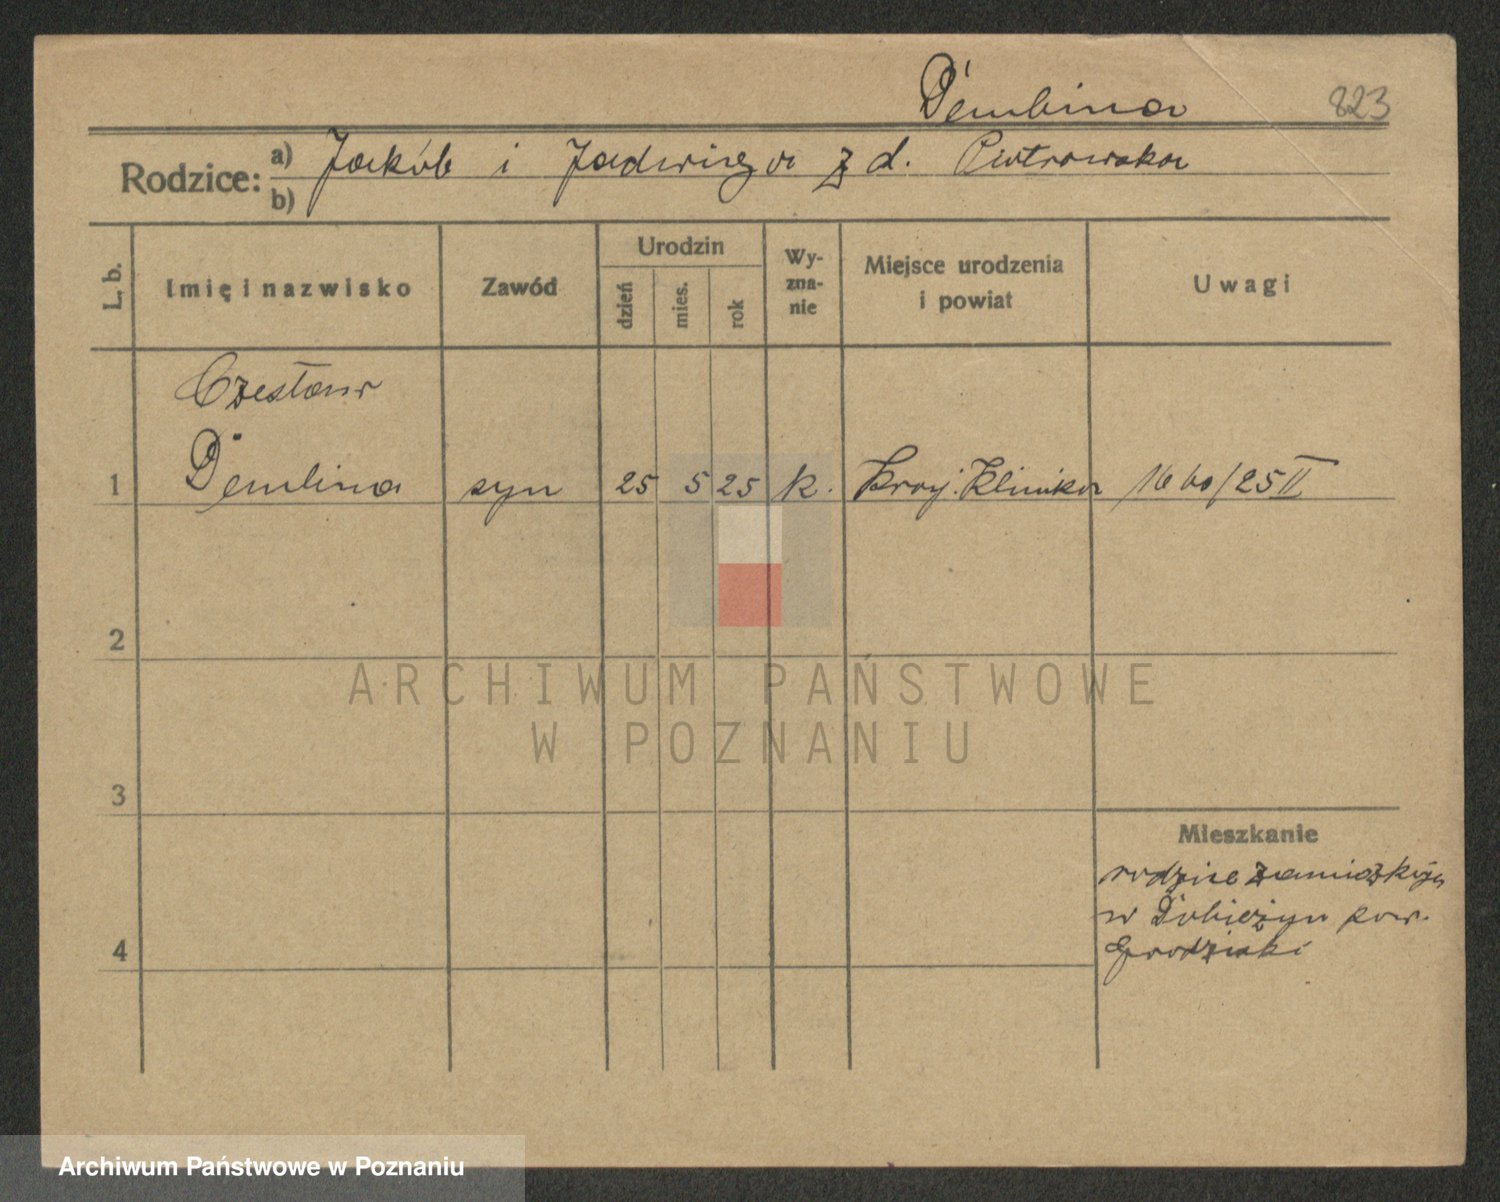 Dembina
823
Rodzice: a) Jakób i Jadwiga z d. Piotrowska
b)
L. b.
Imię i nazwisko
Zawód
Urodzin
dzień
mies.
rok
Wy-
zna-
nie
Miejsce urodzenia
i powiat
Uwagi
Czesław
1 Dembina syn 25 5 25 k. Kraj. Klinika 1660/25 II
2
3
4
Mieszkanie
rodzice zamieszkują
w Dobieżyn pow.
Grodziski
ARCHIWUM PAŃSTWOWE
W POZNANIU
Archiwum Państwowe w Poznaniu